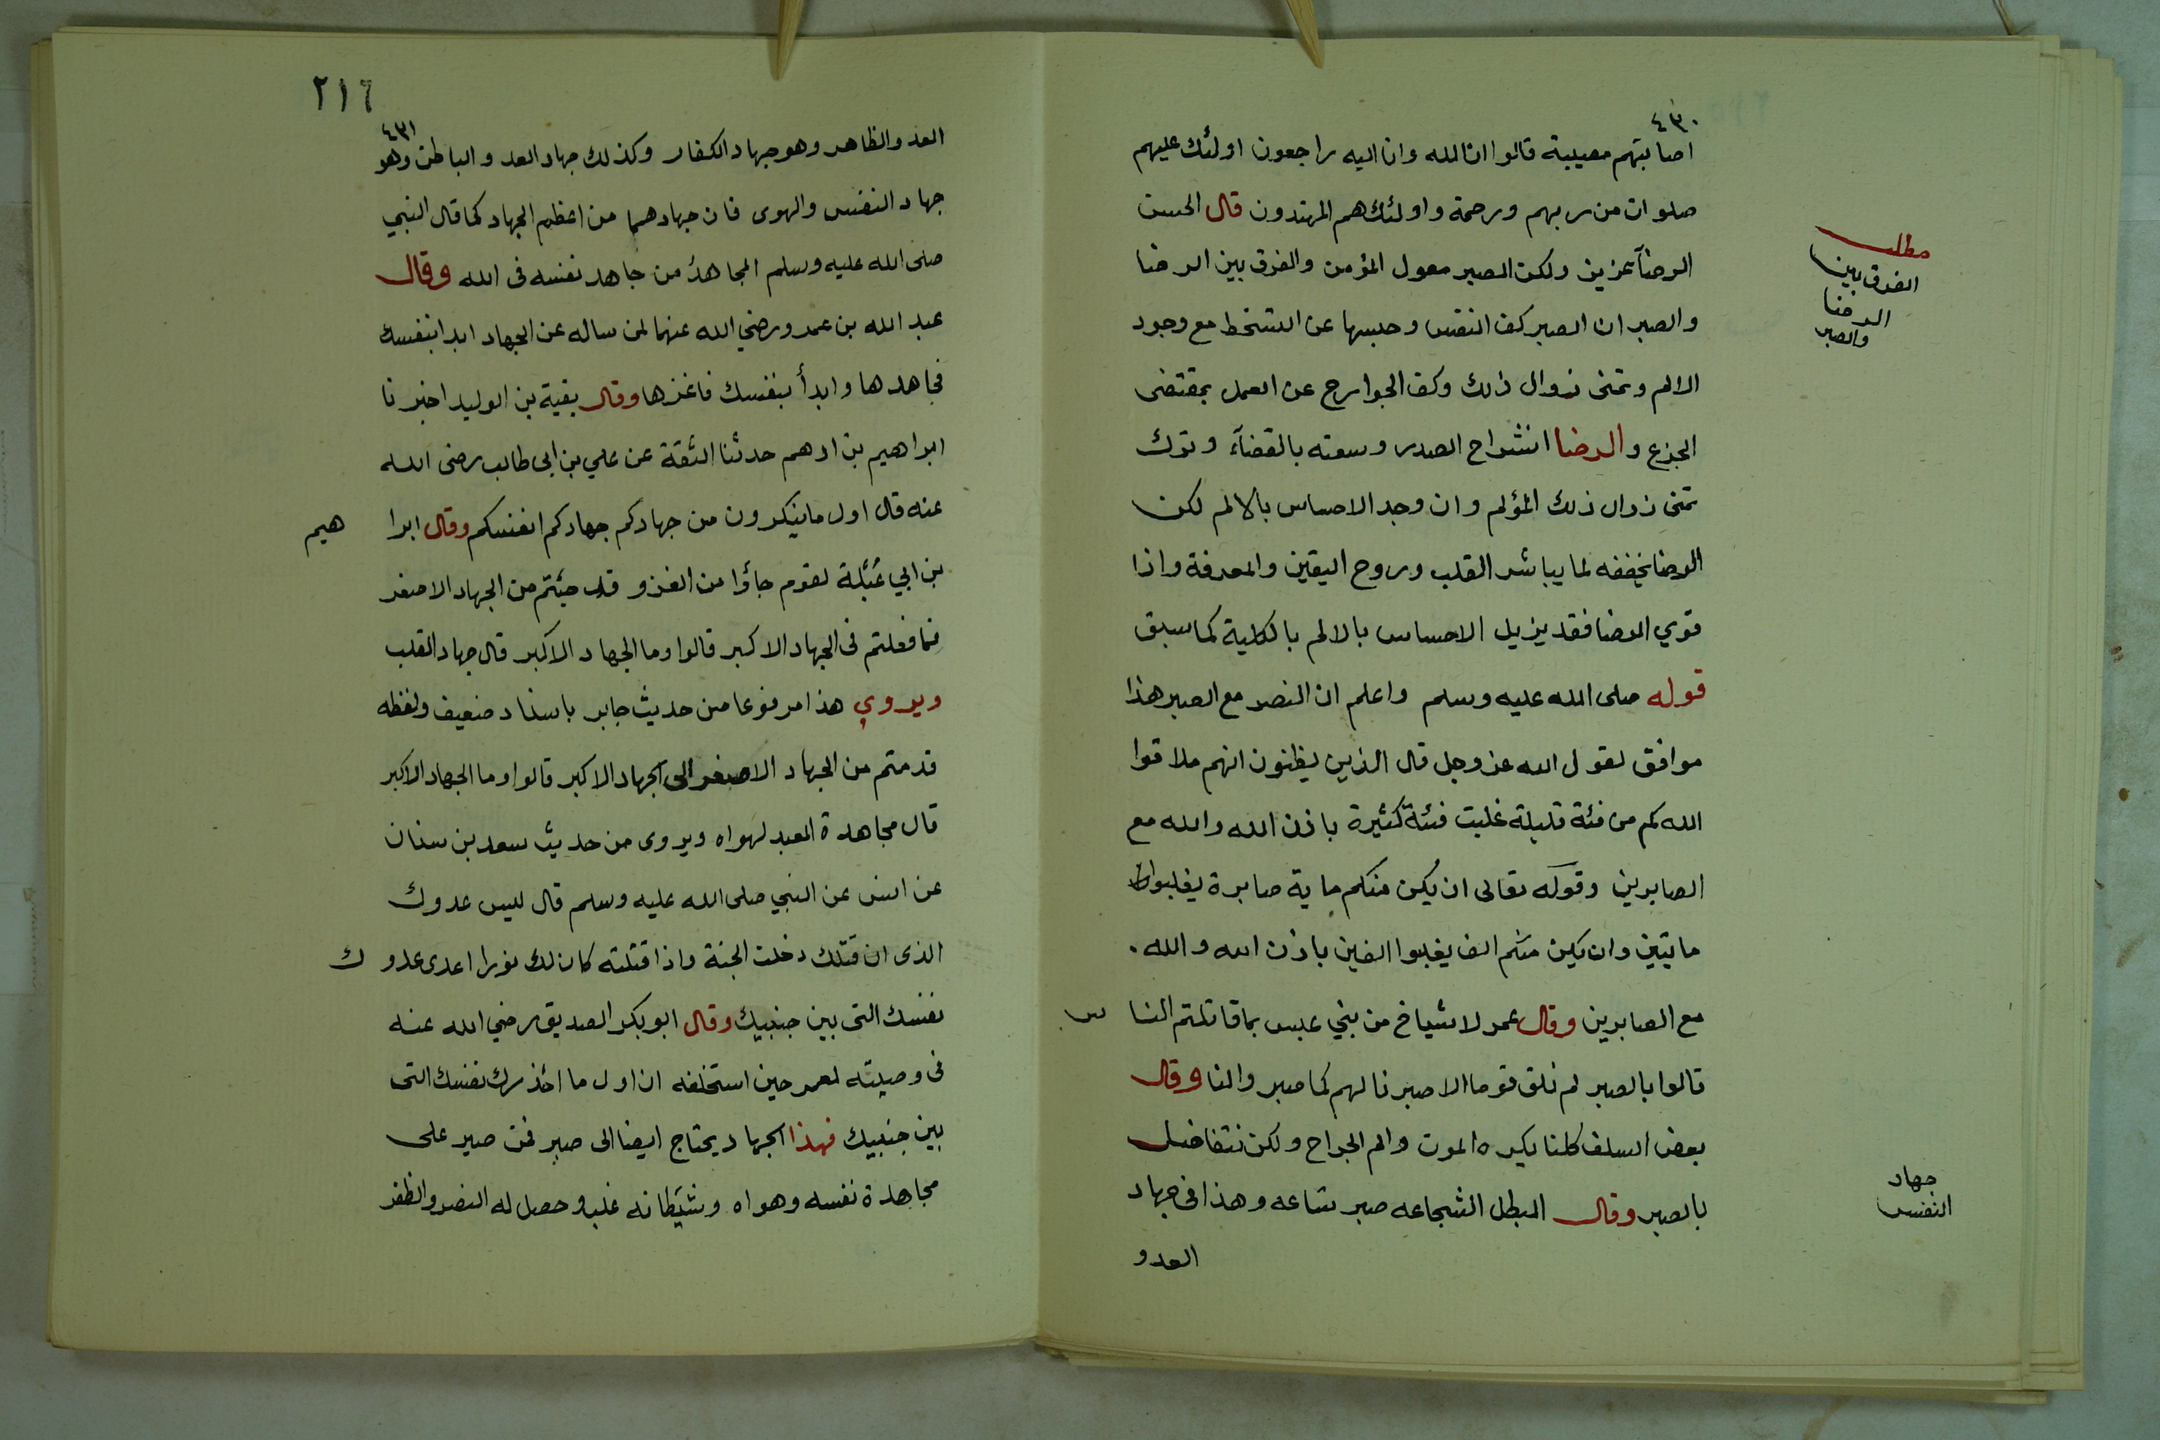 ٤٣٠
اصابتهم مصيبة قالوا انا لله وانا اليه راجعون اولئك عليهم
صلوات من ربهم ورحمة واولئك هم المهتدون قال الحسن
الرضآ عزيز ولكن الصبر معول المؤمن والفرق بين الرضا
والصبر ان الصبر كف النفس وحبسها عن التسخط مع وجود
الالم وتمنى زوال ذلك وكف الجوارح عن العمل بمقتضى
الجزع والرضا انشراح الصدر وسعته بالقضآء وترك
تمنى زوال ذلك المؤلم وان وجد الاحساس بالالم لكن
الرضا يخففه لما يباشر القلب وروح اليقين والمعرفة واذا
قوي الرضا فقد يزيل الاحساس بالالم بالكلية كما سبق
قوله صلى الله عليه وسلم واعلم ان النصر مع الصبر هذا
موافق لقول الله عز وجل قال الذين يظنون انهم ملاقوا
الله كم من فئة قليلة غلبت فئة كثيرة باذن الله والله مع
الصابرين وقوله تعالى ان يكن منكم ماية صابرة يغلبوا
مايتين وان يكن منكم الف يغلبوا الفين باذن الله والله
مع الصابرين وقال عمر لاشياخ من بني عبس بما قاتلتم الناس
قالوا بالصبر لم نلق قوما الا صبرنا لهم كما صبروا لنا وقال
بعض السلف كلنا يكره الموت والم الجراح ولكن نتفاضل
بالصبر وقال البطل الشجاعه صبر ساعه وهذا في جهاد
العدو
مطلب
الفرق بين
الرضا
والصبر
جهاد
النفس
٢١٦
٤٣١
العدو الظاهر وهو جهاد الكفار وكذلك جهاد العدو الباطن وهو
جهاد النفس والهوى فان جهادهما من اعظم الجهاد كما قال النبي
صلى الله عليه وسلم المجاهد من جاهد نفسه فى الله وقال
عبد الله بن عمرو رضي الله عنهما لمن ساله عن الجهاد ابدا بنفسك
فجاهدها وابدأ بنفسك فاغزها وقال بقية بن الوليد اخبرنا
ابراهيم بن ادهم حدثنا الثقة عن علي بن ابى طالب رضى الله
عنه قال اول ما ينكرون من جهادكم جهادكم انفسكم وقال ابراهيم
بن ابي عبلة لقوم جاؤا من الغزو قد جئتم من الجهاد الاصغر
فما فعلتم فى الجهاد الاكبر قالوا وما الجهاد الاكبر قال جهاد القلب
ويروي هذا مرفوعا من حديث جابر باسناد ضعيف ولفظه
قدمتم من الجهاد الاصغر الى الجهاد الاكبر قالوا وما الجهاد الاكبر
قال مجاهدة العبد لهواه ويروى من حديث سعد بن سنان
عن انس عن النبي صلى الله عليه وسلم قال ليس عدوك
الذى ان قتلك دخلت الجنة واذا قتلته كان لك نورا اعدى عدوك
نفسك التى بين جنبيك وقال ابو بكر الصديق رضي الله عنه
فى وصيته لعمر حين استخلفه ان اول ما احذرك نفسك التى
بين جنبيك فهذا الجهاد يحتاج ايضا الى صبر فمن صبر على
مجاهدة نفسه وهواه وشيطانه غلب وحصل له النصر والظفر